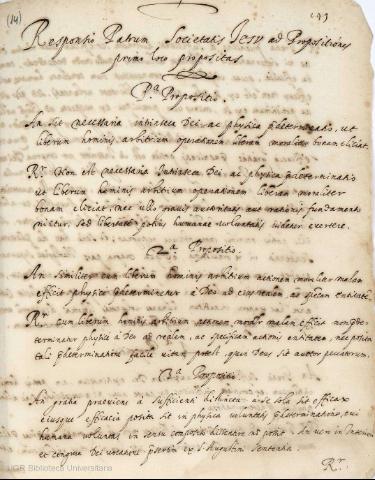 (14)
Responsio Patrum Societatis Jesv ad Propositiones
primo loco propositas
Pª Propositio.
An sit necessaria intrinseca Dei, ac physica prædeterminatio, ut
liberum hominis arbitrium operationem liberam moraliter bonam eliciat.
Rr. Non est necessaria Dei, ac physica prædeterminatio
ut liberum hominis arbitrium operationem liberam moraliter
bonam eliciat, nec ullo autoritatis aut rationis fundamento
nititur, sed libertatem potius humanæ voluntatis videtur evertere.
2ª Propositio.
An similiter cum liberum hominis arbitrium actionem moraliter malam
efficit physice prædeterminetur à Deo ad eius realem ac specam entitatem.
Rr. cum liberum hominis arbitrium actionem moralr malam efficit non præde-
terminatur physice à Deo ad realem, ac specificam actionis entitatem, nec posita
tali prædeterminatione facile vitari potest, quin Deus sit autor peccatorum.
3ª Propositio
An gratia præveniens à sufficienti distincta, a se sola sit efficax
eiusque efficacia posita sit in physica voluntatis prædeterminatione, cui
humana voluntas in sensu composito dissentire nō possit. An vero in
et congrua Dei vocatione ex S. Augustini sententia.
Rr.
UGR Biblioteca Universitaria